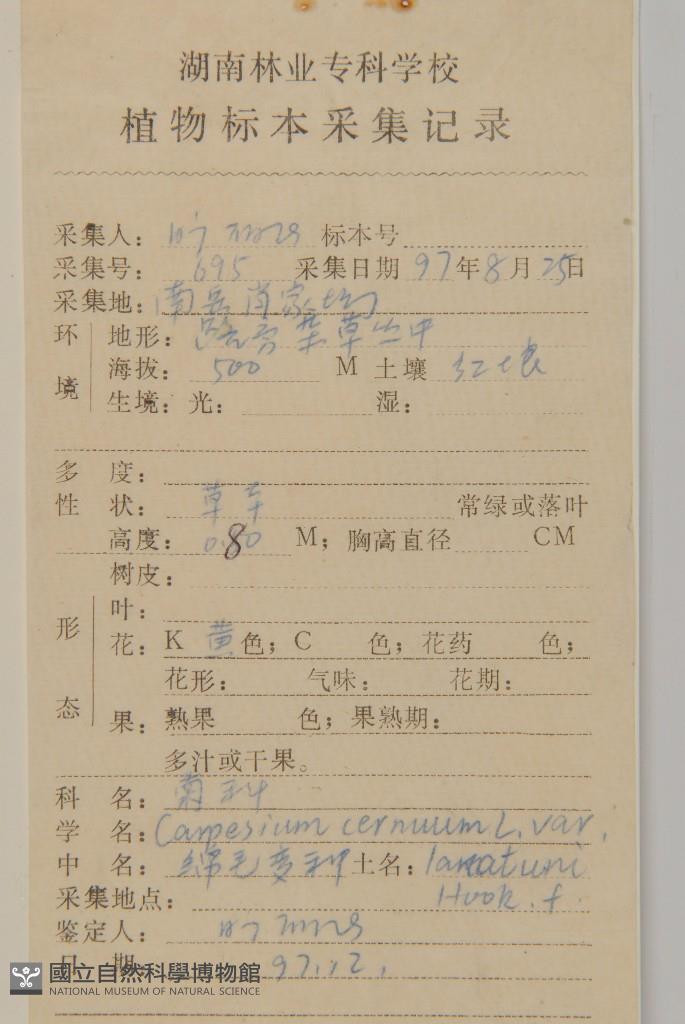 湖南林业专科学校
植物标本采集记录
采集人： 标本号
采集号： 695 采集日期 97年8月25日
采集地：南岳肖家
环境 地形： 杂草丛中
海拔： 500 M 土壤 红壤
生境：光： 湿：
多 度：
性 状： 草本 常绿或落叶
高度： 0.80 M；胸高直径 CM
树皮：
形态 叶：
花：K 黄色；C 色；花药 色；
花形： 气味： 花期：
果：熟果 色；果熟期：
多汁或干果。
科 名： 菊科
学 名：Carpesium cernuum L. var.
中 名： 绵毛变种 土名：lanatum
采集地点： Hook. f.
鉴定人：
日 期 97.12.
國立自然科學博物館
NATIONAL MUSEUM OF NATURAL SCIENCE